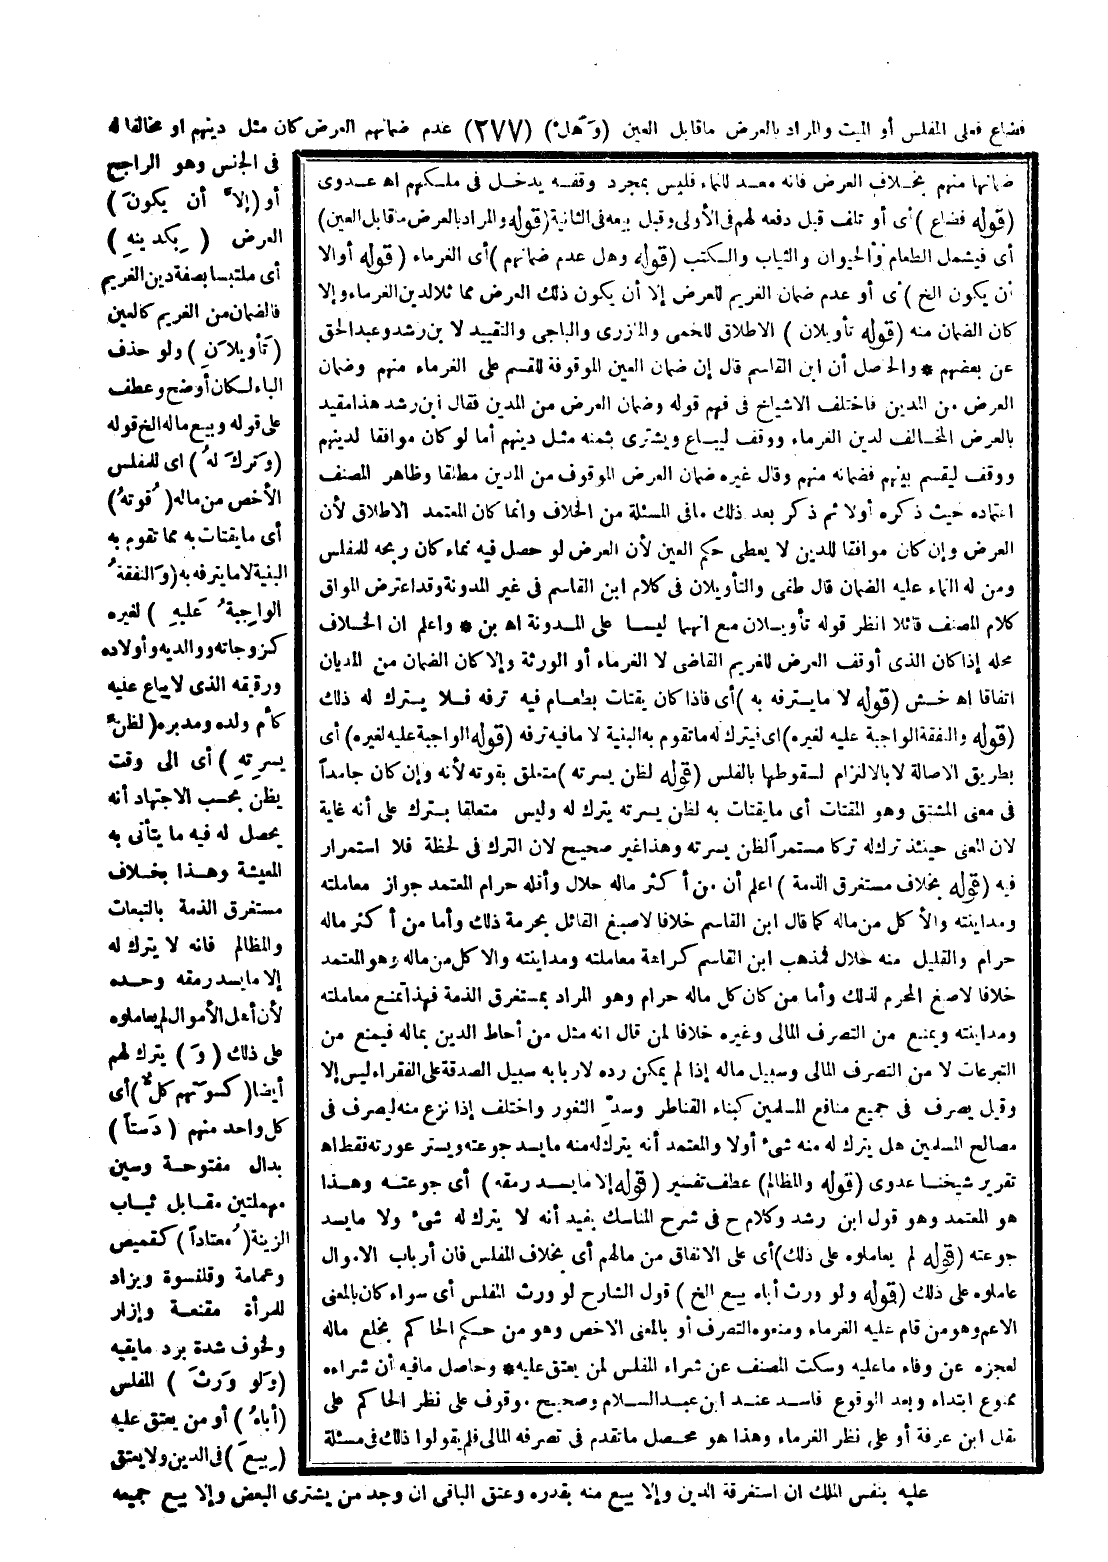 فضاع فعلى المفلس أو الميت والمراد بالعرض ماقابل العين (وَهَلْ) (٢٧٧) عدم ضمانهم العرض كان مثل دينهم او مخالفا له
فى الجنس وهو الراجح
أو (إلاَّ أن يكونَ)
العرض (بِكَدينهِ)
أى ملتبسا بصفة دين الغريم
فالضمان من الغريم كالعين
(تأويلانِ) ولو حذف
الباء لكان أوضح وعطف
على قوله وبيع ماله الخ قوله
(وَتركَ لهُ) اى للمفلس
الأخص من ماله (قُوتهُ)
أى مايقتات به مما تقوم به
البنية لا مايترفه به (وَالنفقةُ
الواجِبةُ عَليهِ) لغيره
كزوجاته ووالديه وأولاده
ورقيقه الذى لا يباع عليه
كأم ولده ومدبره (لظنِّ
يسرتِهِ) أى الى وقت
يظن بحسب الاجتهاد أنه
يحصل له فيه ما يتأتى به
المعيشة وهذا بخلاف
مستغرق الذمة بالتبعات
والمظالم فانه لا يترك له
إلا مايسد رمقه وحده
لأن أهل الأموال لم يعاملوه
على ذلك (وَ) يترك لهم
أيضا (كسوَتهم كلٌّ) أى
كل واحد منهم (دَستاً)
بدال مفتوحة وسين
مهملتين مقابل ثياب
الزينة (مُعتاداً) كقميص
وعمامة وقلنسوة ويزاد
للمرأة مقنعة وإزار
ولخوف شدة برد مايقيه
(وَلو وَرثَ) المفلس
(أباهُ) أو من يعتق عليه
(بِيعَ) فى الدين ولا يعتق
عليه بنفس الملك ان استغرقة الدين وإلا بيع منه بقدره وعتق الباقى ان وجد من يشترى البعض وإلا بيع جميعه
ضمانها منهم بخلاف العرض فانه معد للنماء فليس بمجرد وقفه يدخل فى ملكهم اه عدوى
(قوله فضاع) أى أو تلف قبل دفعه لهم فى الأولى وقبل بيعه فى الثانية (قوله والمراد بالعرض ماقابل العين)
أى فيشمل الطعام والحيوان والثياب والكتب (قوله وهل عدم ضمانهم) أى الغرماء (قوله أو الا
أن يكون الخ) أى أو عدم ضمان الغريم للعرض إلا أن يكون ذلك العرض مماثلا لدين الغرماء وإلا
كان الضمان منه (قوله تأويلان) الاطلاق للخمى والمازرى والباجى والتقييد لابن رشد وعبد الحق
عن بعضهم * والحاصل أن ابن القاسم قال إن ضمان العين الموقوفة للقسم على الغرماء منهم وضمان
العرض من المدين فاختلف الاشياخ فى فهم قوله وضمان العرض من المدين فقال ابن رشد هذا مقيد
بالعرض المخالف لدين الغرماء ووقف ليباع ويشترى بثمنه مثل دينهم أما لو كان موافقا لدينهم
ووقف ليقسم بينهم فضمانه منهم وقال غيره ضمان العرض الموقوف من المدين مطلقا وظاهر المصنف
اعتماده حيث ذكره أولا ثم ذكر بعد ذلك مافى المسئلة من الخلاف وانما كان المعتمد الاطلاق لأن
العرض وإن كان موافقا للدين لا يعطى حكم العين لأن العرض لو حصل فيه نماء كان ربحه للمفلس
ومن له النماء عليه الضمان قال طفى والتأويلان فى كلام ابن القاسم فى غير المدونة وقد اعترض المواق
كلام المصنف قائلا انظر قوله تأويلان مع انهما ليسا على المدونة اه بن * واعلم ان الخلاف
محله إذا كان الذى أوقف العرض للغريم القاضى لا الغرماء أو الورثة وإلا كان الضمان من المديان
اتفاقا اه خش (قوله لا مايترفه به) أى فاذا كان يقتات بطعام فيه ترفه فلا يترك له ذلك
(قوله والنفقة الواجبة عليه لغيره) اى فيترك له ما تقوم به البنية لا مافيه ترفه (قوله الواجبة عليه لغيره) أى
بطريق الاصالة لا بالالتزام لسقوطها بالفلس (قوله لظن يسرته) متعلق بقوته لأنه وإن كان جامداً
فى معنى المشتق وهو المقتات أى مايقتات به لظن يسرته يترك له وليس متعلقا بترك على أنه غاية
لان المعنى حينئذ ترك له تركا مستمراً لظن يسرته وهذا غير صحيح لان الترك فى لحظة فلا استمرار
فيه (قوله بخلاف مستغرق الذمة) اعلم أن من أكثر ماله حلال وأقله حرام المعتمد جواز معاملته
ومداينته والأكل من ماله كما قال ابن القاسم خلافا لاصبغ القائل بحرمة ذلك وأما من أكثر ماله
حرام والقليل منه حلال فمذهب ابن القاسم كراهة معاملته ومداينته والاكل من ماله وهو المعتمد
خلافا لاصبغ المحرم لذلك وأما من كان كل ماله حرام وهو المراد بمستغرق الذمة فهذا تمنع معاملته
ومداينته ويمنع من التصرف المالى وغيره خلافا لمن قال انه مثل من أحاط الدين بماله فيمنع من
التبرعات لا من التصرف المالى وسبيل ماله إذا لم يمكن رده لاربابه سبيل الصدقة على الفقراء ليس إلا
وقيل يصرف فى جميع منافع المسلمين كبناء القناطر وسدّ الثغور واختلف إذا نزع منه ليصرف فى
مصالح المسلمين هل يترك له منه شىء أولا والمعتمد أنه يترك له منه مايسد جوعته ويستر عورته فقط اه
تقرير شيخنا عدوى (قوله والمظالم) عطف تفسير (قوله إلا مايسد رمقه) أى جوعته وهذا
هو المعتمد وهو قول ابن رشد وكلام ح فى شرح المناسك يفيد أنه لا يترك له شىء ولا مايسد
جوعته (قوله لم يعاملوه على ذلك) أى على الانفاق من مالهم أى بخلاف المفلس فان أرباب الاموال
عاملوه على ذلك (قوله ولو ورث أباه بيع الخ) قول الشارح لو ورث المفلس أى سواء كان بالمعنى
الاعم وهو من قام عليه الغرماء ومنعوه التصرف أو بالمعنى الاخص وهو من حكم الحاكم بخلع ماله
لعجزه عن وفاء ماعليه وسكت المصنف عن شراء المفلس لمن يعتق عليه * وحاصل مافيه أن شراءه
ممنوع ابتداء وبعد الوقوع فاسد عند ابن عبد السلام وصحيح موقوف على نظر الحاكم على
نقل ابن عرفة أو على نظر الغرماء وهذا هو محصل ماتقدم فى تصرفه المالى فلم يقولوا ذلك فى مسئلة